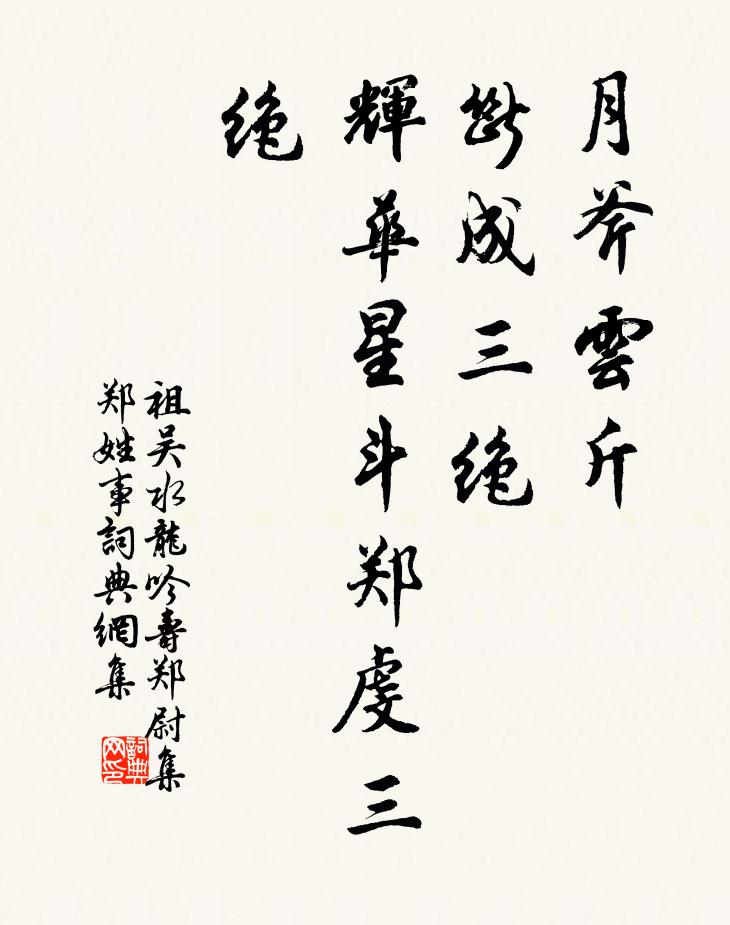 月斧雲斤
斵成三绝
輝華星斗郑虔三
绝
祖吴水龍吟壽郑尉集
郑姓事詞典網集
詞典网印